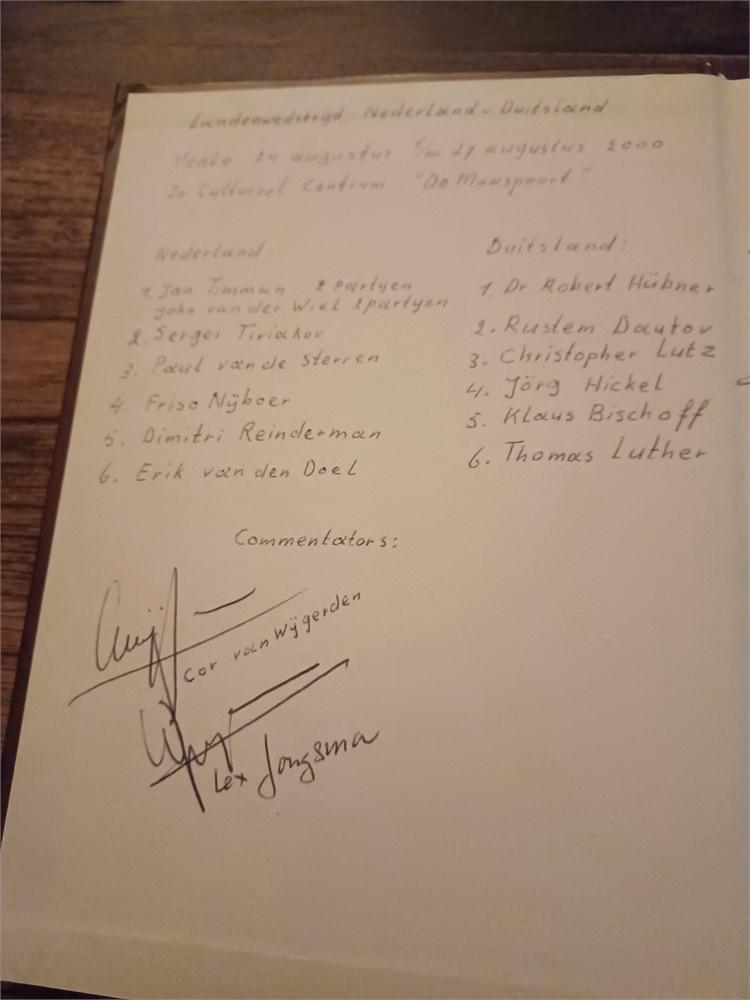 Landenwedstrijd Nederland - Duitsland
Venlo 24 augustus t/m 27 augustus 2000
In Cultureel Centrum "De Maaspoort"
Nederland:
1. Jan Timman 2 partijen
John van der Wiel 2 partijen
2. Sergei Tiviakov
3. Paul van de Sterren
4. Friso Nijboer
5. Dimitri Reinderman
6. Erik van den Doel
Duitsland:
1. Dr Robert Hübner
2. Rustem Dautov
3. Christopher Lutz
4. Jörg Hickel
5. Klaus Bischoff
6. Thomas Luther
Commentators:
Cor van Wijgerden
Lex Jongsma